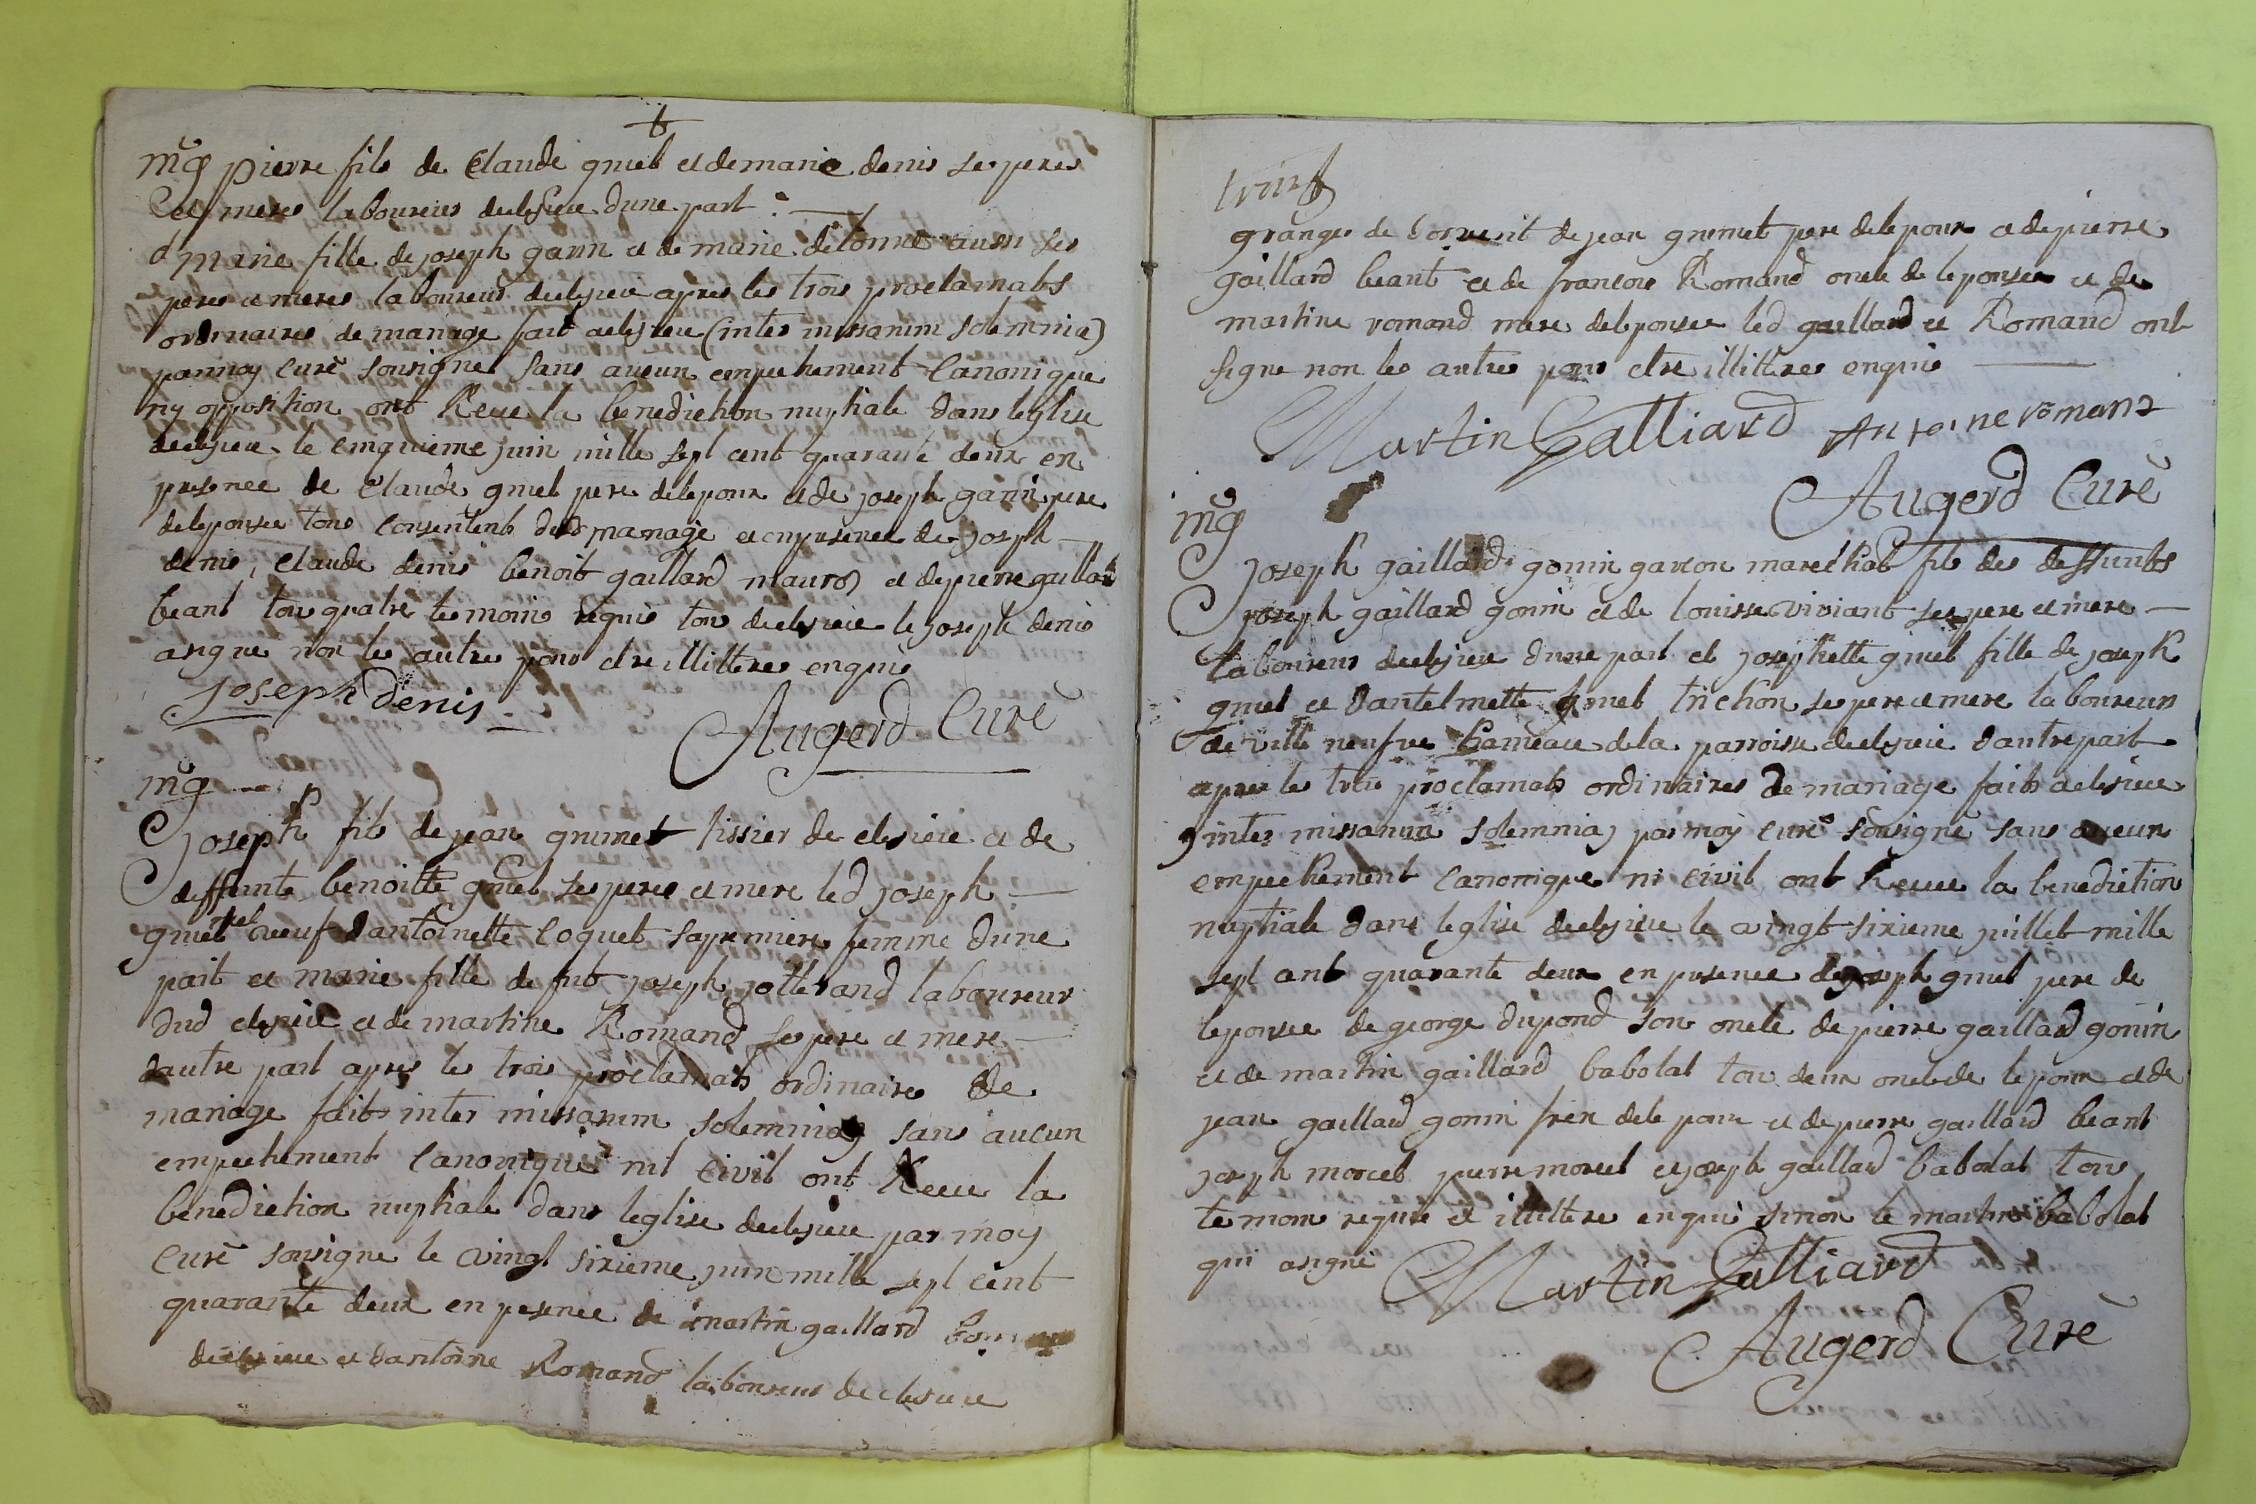 mg pierre fils de Claude gniel et de marie denis ses peres
et meres laboureurs declesieu dune part
et marie fille de joseph garin et de marie delonne aussi ses
peres et meres laboureurs declesieu apres les trois proclamats
ordinaires de mariage fait aclesieu (inter missarum solemnia)
parmoy Curé sousigné sans aucun empechement Canonique
ny opposition ont Receu la benediction nuptiale dans leglise
declesieu le cinquieme juin mille sept cent quarante deux en
presence de Claude gniel pere delepoux et de joseph garin pere
delepousee tous Consentent dud mariage et en presence de joseph
denis, Claude denis benoit gaillard et de pierre gaillard
beant tous quatre temoins requis tous declesieu le joseph denis
a signe non les autres pour etre illitteres enquis
joseph denis
Augerd Curé
mg
joseph fils de jean grumet tissier de clesieu et de
deffunte benoitte gniel ses peres et mere led joseph
veuf dantoinette Coquet sa premiere femme dune
part et marie fille de fut joseph jotterand laboureur
dud clesieu et de martine Romand ses pere et mere
dautre part apres les trois proclamats ordinaires de
mariage faits inter missarum solemnia) sans aucun
empechement Canonique ni Civil ont Receu la
benediction nuptiale dans leglise declesieu par moy
Curé sousigne le vingt sixieme juin mille sept cent
quarante deux en presence de martin gaillard
declesieu et dantoine Romand laboureur declesieu
granges de de jean grumet pere delepoux et de pierre
gaillard beant et de francois Romand oncle de lepousee et de
martine romand mere delepousee led gaillard et Romand ont
signe non les autres pour etre illitteres enquis
Martin Galliard Antoine romant
Augerd Curé
mg
joseph gaillard gonin garcon maréchal fils des deffunts
joseph gaillard gonin et de louisse viviant ses pere et mere
laboureurs declesieu dune part et josephette gniel fille de joseph
gniel et dantelmette gniel trichon ses pere et mere laboureurs
de ville neufve hameau dela parroisse declesieu dautre part
apres les trois proclamats ordinaires de mariage faits aclesieu
(inter missarum solemnia) par moy curé sousigné sans aucun
empechement Canonique ni civil ont Receu la benediction
nuptiale dans leglise declesieu le vingt sixieme juillet mille
sept cent quarante deux en presence de joseph gniel pere de
lepousee de george dupond son oncle de pierre gaillard gonin
et de martin gaillard babolat tous deux oncles de lepoux et de
jean gaillard gonin frere delepoux et de pierre gaillard beant
joseph morcel pierre morcel et joseph gaillard babolat tous
temoins requis et illittere enquis sinon le martin babolat
qui a signé Martin Galliard
Augerd Curé